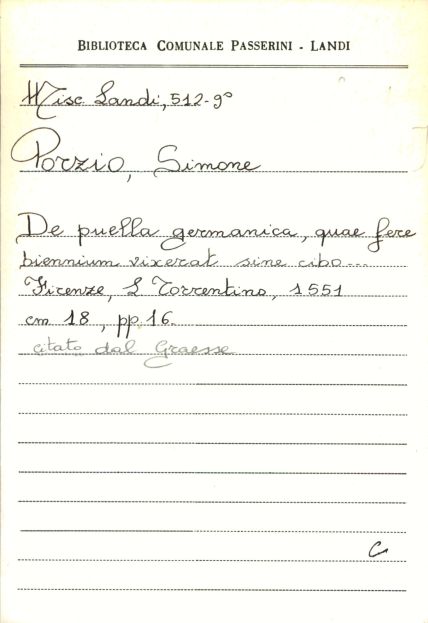 BIBLIOTECA COMUNALE PASSERINI - LANDI
Misc. Landi, 512-9°
Porzio, Simone
De puella germanica, quae fere
biennium vixerat sine cibo...
Firenze, L Torrentino, 1551
cm 18, pp. 16.
citato dal Graesse
C